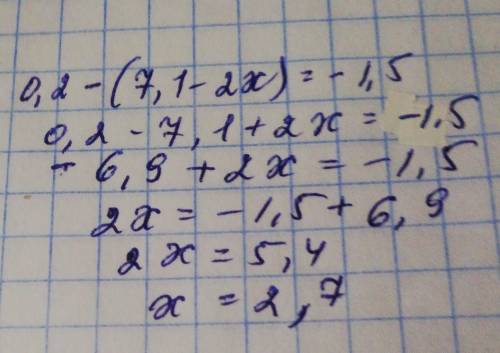 0,2 - (7,1 - 2x) = -1,5
0,2 - 7,1 + 2x = -1,5
- 6,9 + 2x = -1,5
2x = -1,5 + 6,9
2x = 5,4
x = 2,7